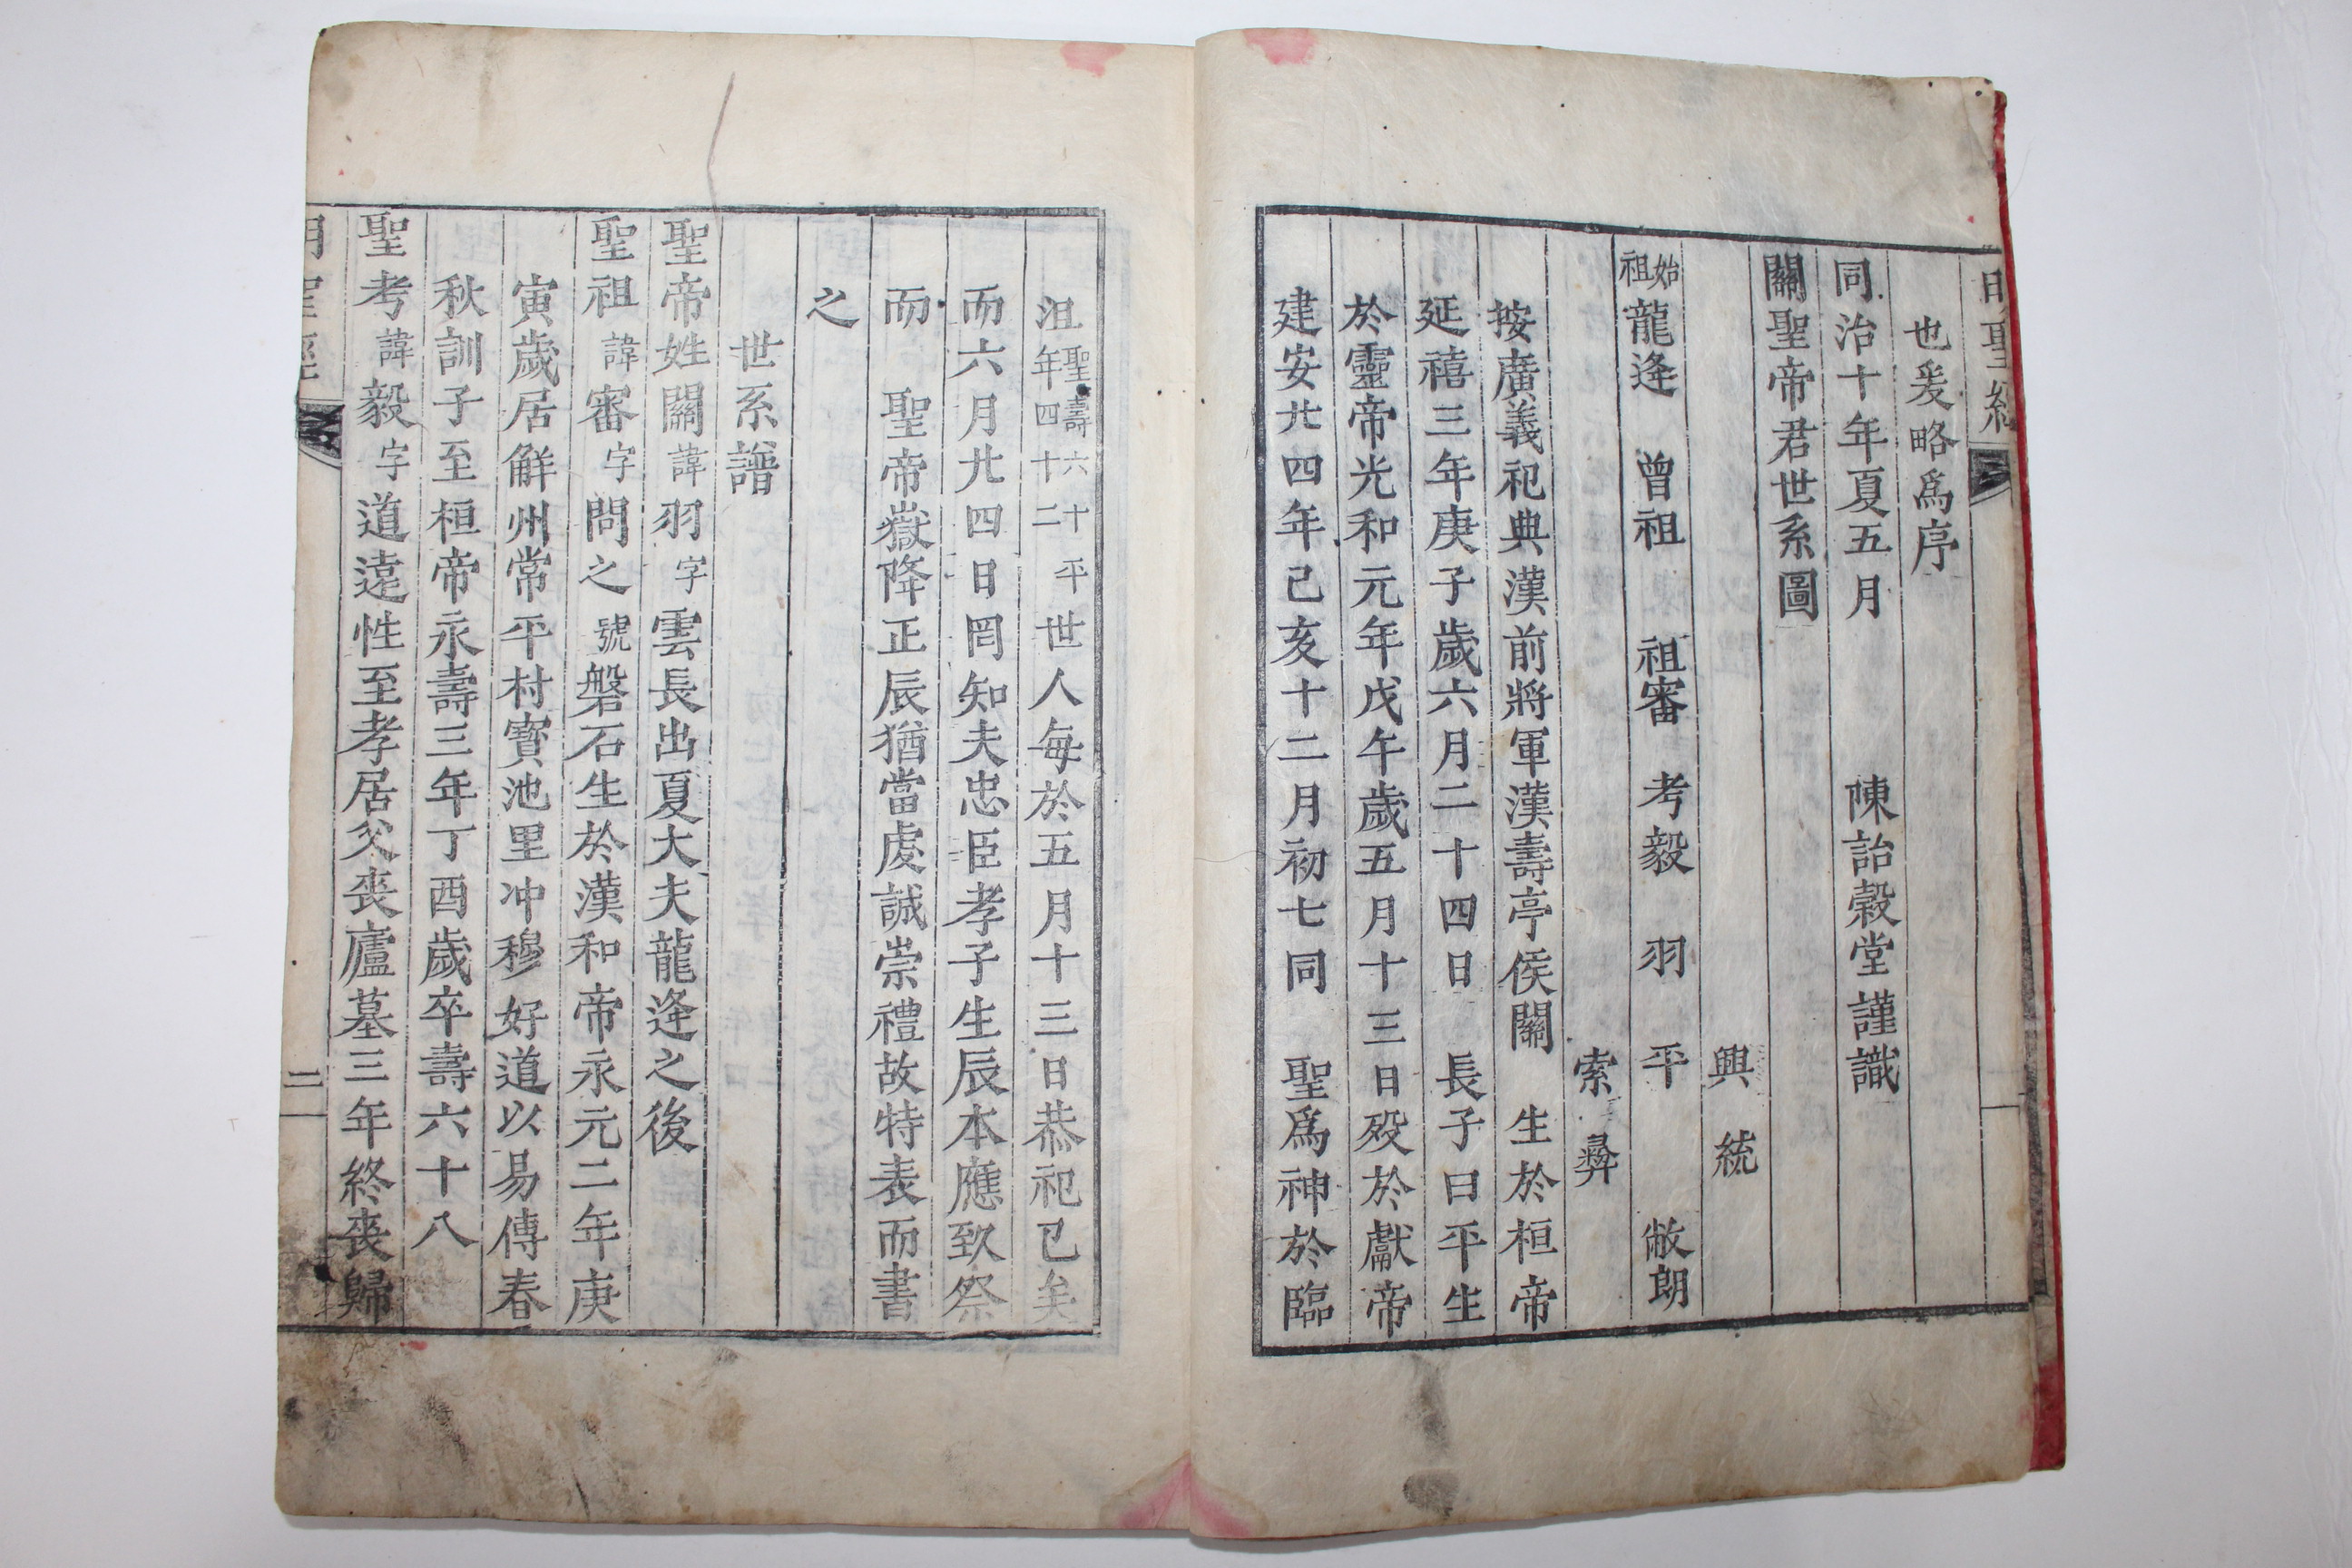 明聖經
也爰略爲序
同治十年夏五月 陳詒穀堂謹識
關聖帝君世系圖
興 統
始祖龍逄 曾祖 祖審 考毅 羽 平 敝朗
索 彝
按廣義祀典漢前將軍漢壽亭侯關 生於桓帝
延禧三年庚子歲六月二十四日 長子曰平生
於靈帝光和元年戊午歲五月十三日歿於獻帝
建安廿四年己亥十二月初七同 聖爲神於臨
沮聖壽六十平年四十二世人每於五月十三日恭祀已矣
而六月廿四日罔知夫忠臣孝子生辰本應致祭
而 聖帝嶽降正辰猶當虔誠崇禮故特表而書
之
世系譜
聖帝姓關諱羽字雲長出夏大夫龍逄之後
聖祖諱審字問之號磐石生於漢和帝永元二年庚
寅歲居解州常平村寳池里冲穆好道以易傳春
秋訓子至桓帝永壽三年丁酉歲卒壽六十八
聖考諱毅字道遠性至孝居父喪廬墓三年終喪歸
明聖經
二